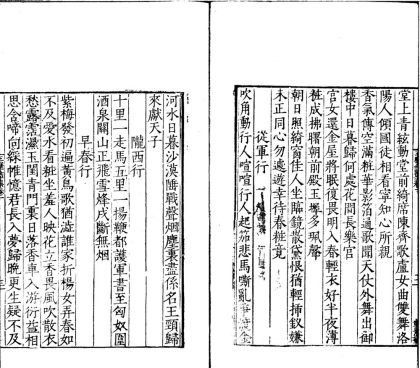 堂上青絃動堂前綺席陳齊歌盧女曲雙舞洛
陽人傾國徒相看寧知心所親
香氣傳空滿粧華影箔通歌聞天仗外舞出御
樓中日暮歸何處花間長樂宮
宮女還金屋將眠復畏明入春輕衣好半夜薄
粧成拂曙朝前殿玉墀多珮聲
朝日照綺窗佳人坐臨鏡散黛恨猶輕插釵嫌
未正同心勿遽遊幸待春粧竟
從軍行
吹角動行人喧喧行人起笳悲馬嘶亂爭渡金
河水日暮沙漠陲戰聲烟塵裏盡係名王頸歸
來獻天子
隴西行
十里一走馬五里一揚鞭都護軍書至匈奴圍
酒泉關山正飛雪烽戍斷無烟
早春行
紫梅發初遍黃鳥歌猶澁誰家折楊女弄春如
不及愛水看粧坐羞人映花立香畏風吹散衣
愁露霑濕玉閨青門裏日落香車入游衍益相
思含啼向綵帷憶君長入夢歸晚更生疑不及